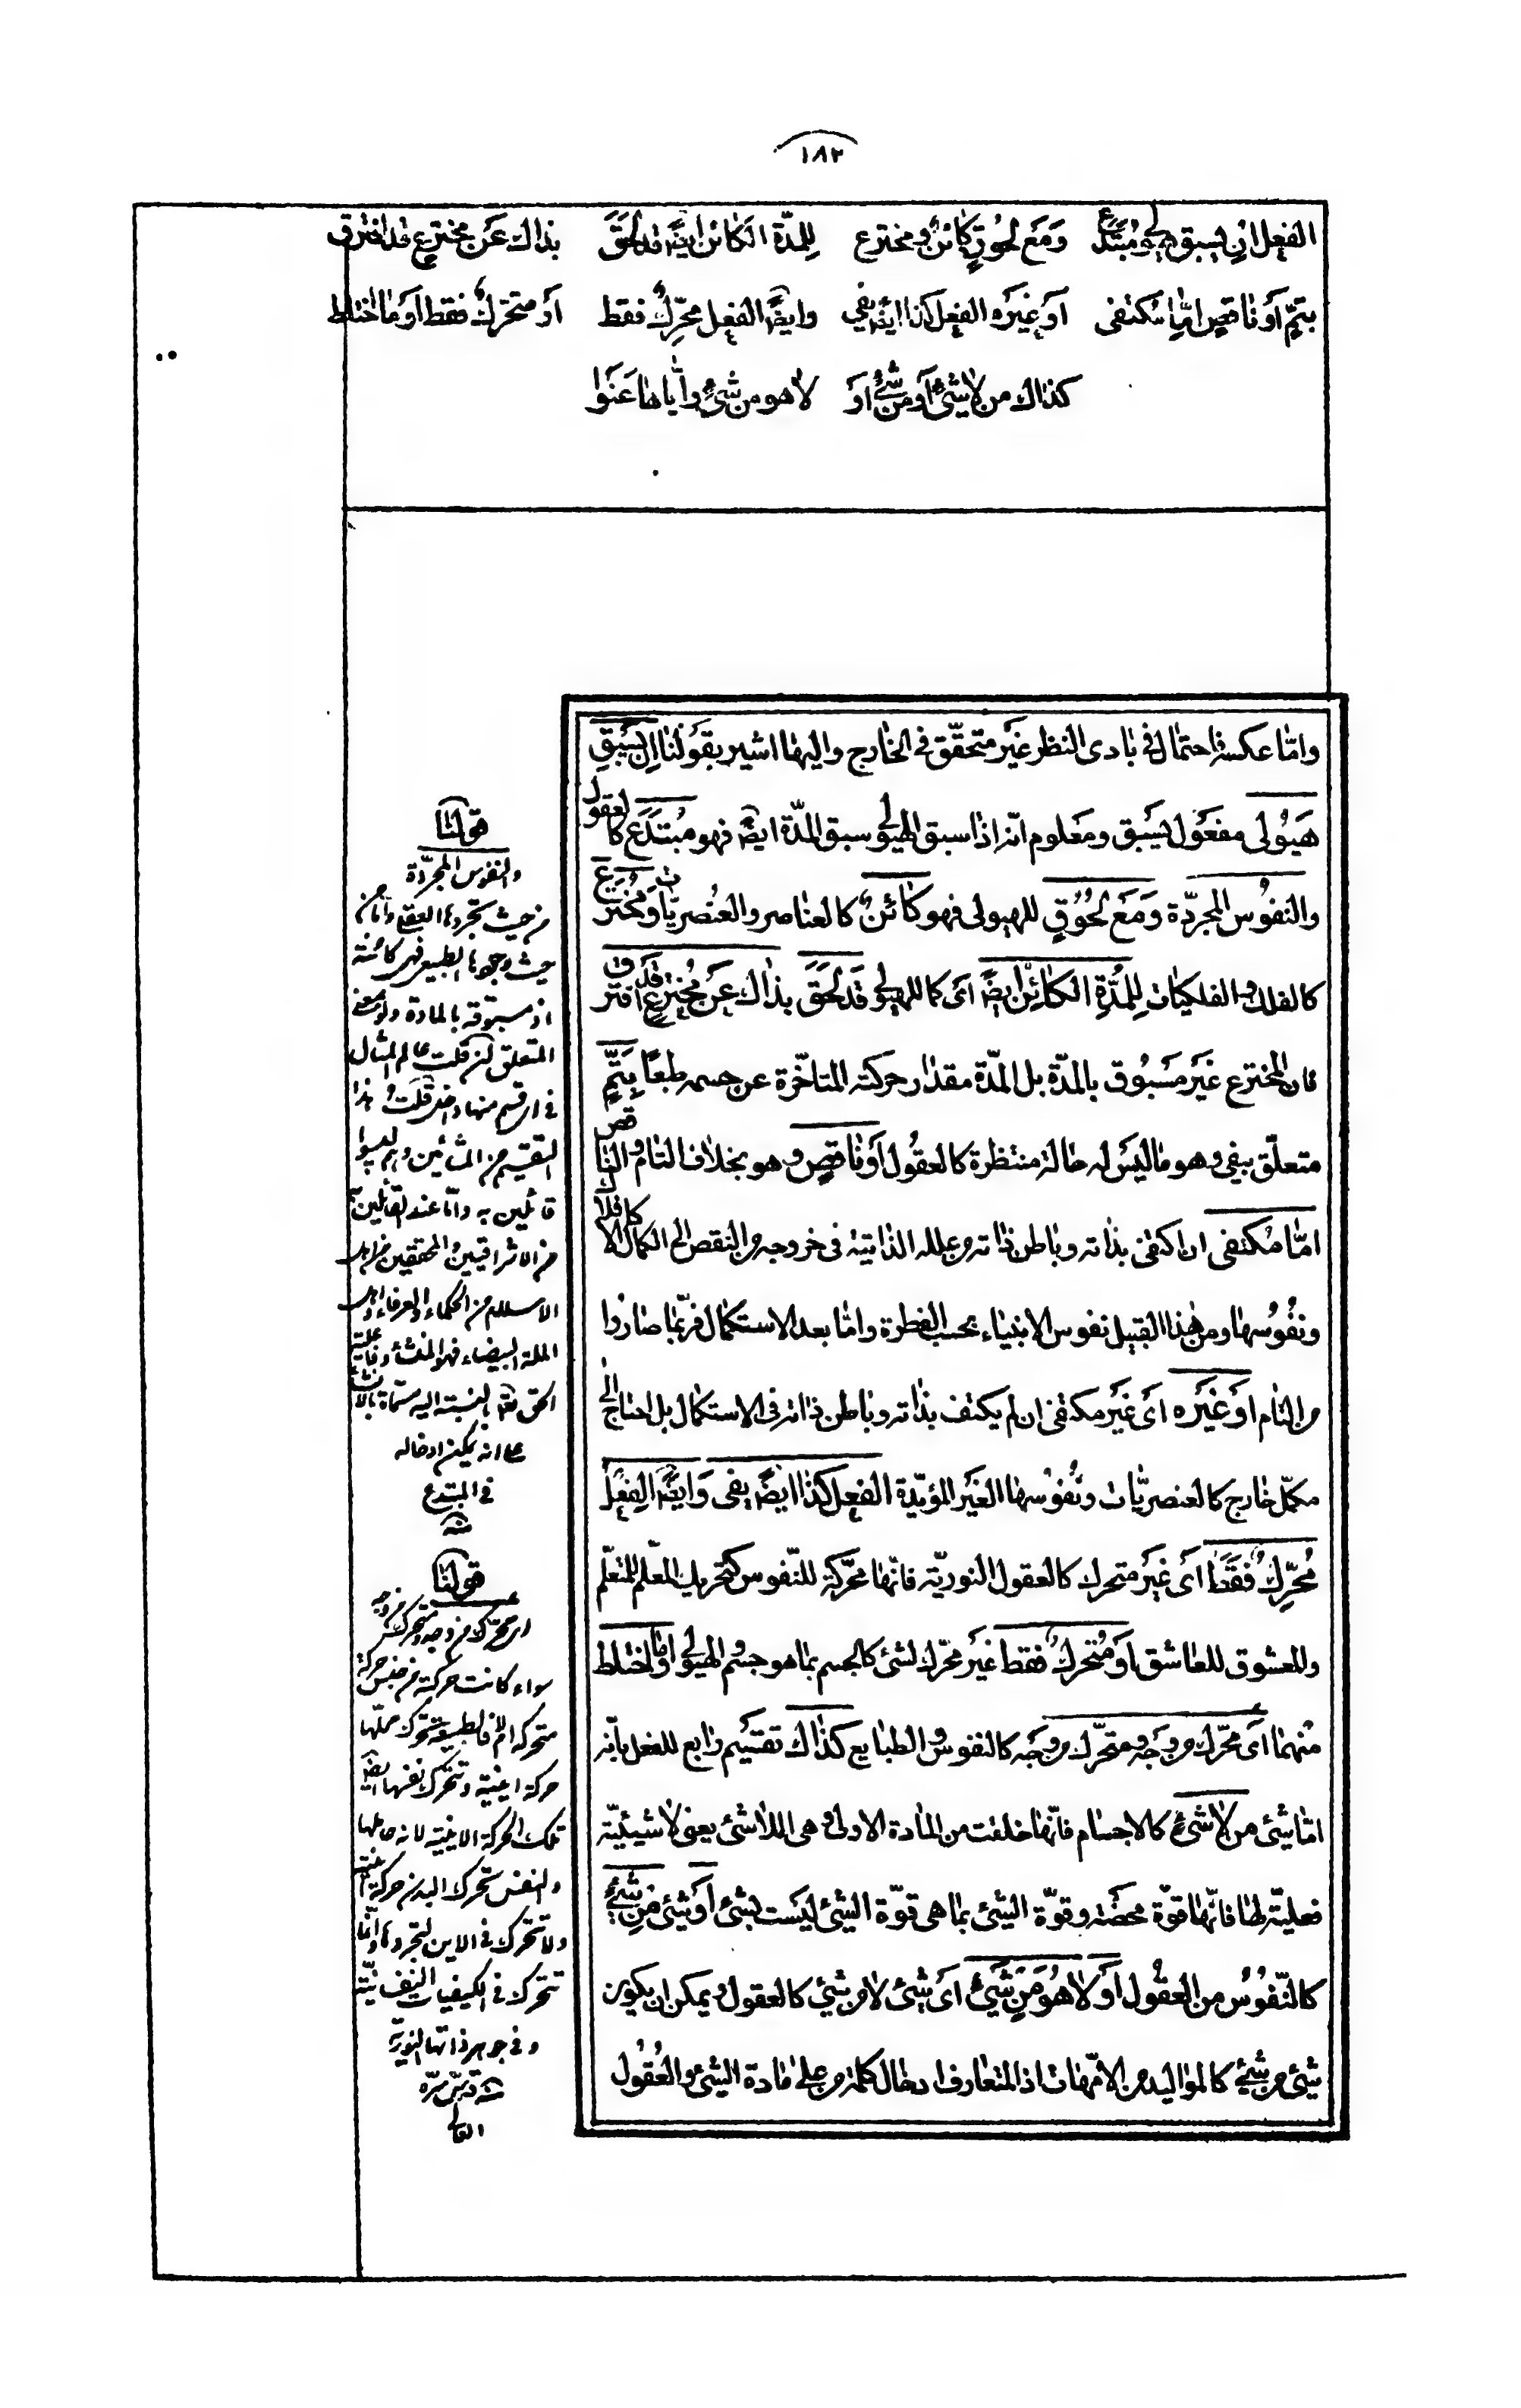 ١٨٢
الفعل ان يسبق هيولى مبتدع ومع لحوق كائن ومخترع للمدّة الكائن ايضا قد لحق بذاك عن مخترع قد افترق
بتمّ أو ناقص امّا مكتفى أو غيره الفعل كذا ايضا يفى وايضا الفعل محرّك فقط أو متحرك فقط أو ما اختلط
كذاك من لا شئ أو من شئ أو لا هو من شئ وأيّاما عنوا
وامّا عكسه فاحتمال فى بادى النظر غير متحقّق فى الخارج واليها اشير بقولنا ان يسبق
هيولى مفعول يسبق ومعلوم انّه اذا سبق الهيولى سبق المدّة ايضا فهو مبتدع كالعقول
والنفوس المجردّة ومع لحوق للهيولى فهو كائن كالعناصر والعنصريّات ومخترع
كالفلك والفلكيات للمدّة الكائن ايضا اى كما للهيولى قد لحق بذاك عن مخترع قد افترق
فان المخترع غير مسبوق بالمدّة بل المدّة مقدار حركته المتاخّرة عن جسمه طبعا بتمّ
متعلّق بيفى وهو ما ليس له حالة منتظرة كالعقول أو ناقص وهو بخلاف التام والناقص
امّا مكتفى ان اكتفى بذاته وباطن ذاته من علله الذاتية فى خروجه من النقص الى الكمال كالافلاك
ونفوسها ومن هذا القبيل نفوس الانبياء بحسب الفطرة وامّا بعد الاستكمال فربّما صاروا
من التام او غيره اى غير مكتفى ان لم يكتف بذاته وباطن ذاته فى الاستكمال بل احتاج الى
مكمّل خارج كالعنصريّات ونفوسها الغير المؤيّدة الفعل كذا ايضا يفى وايضا الفعل
محرّك فقط اى غير متحرك كالعقول النوريّة فانّها محرّكة للنّفوس كتحريك المعلّم للمتعلّم
والمعشوق للعاشق أو متحرك فقط غير محرّك لشئ كالجسم بما هو جسم والهيولى أو ما اختلط
منهما اى محرّك من وجه ومتحرّك من وجه كالنفوس والطبايع كذاك تقسيم رابع للفعل بانّه
امّا شئ من لا شئ كالاجسام فانّها خلقت من المادة الاولى وهى اللاشئ يعنى لا شيئيّة
فعليّة لها فانّها قوّة محضة وقوّة الشئ بما هى قوّة الشئ ليست بشئ أو شئ من شئ
كالنّفوس من العقول أو لا هو من شئ اى شئ لا من شئ كالعقول ويمكن ان يكون
شئ من شئ كالمواليد من الامّهات اذ المتعارف ادخال كلمة من على مادة الشئ والعقول
قولنا
والنفوس المجرّدة
من حيث تجردها العقلى وامّا من
حيث وجودها الطبيعى فهى كائنة
اذ مسبوقة بالمادة ولو بمعنى
المتعلق فان قلت عالم المثال
فى اى قسم منها داخل قلت هذا
التقسيم من المشائين وهم ليسوا
قائلين به وامّا عند القائلين به
من الاشراقيين والمحققين من اهل
الاسلام من الحكماء والعرفاء واهل
الملة البيضاء فهو المنشأ وفاعلية
الحق تعالى بالنسبة اليه مسمّاة بالانشاء
على انه يمكن ادخاله
فى المبتدع
منه
قولنا
اى محرّك من وجه ومتحرك من وجه
سواء كانت حركته من جنس حركة
متحركه ام لا فالطبيعة تحرك محلّها
حركة اينية وتتحرك بنفسها ايضا
تلك الحركة الاينية لانه حاملها
والنفس تحرك البدن حركة اينية
ولا تتحرك فى الاين لتجردها وانّما
تتحرك فى الكيفيات النفسانيّة
وفى جوهر ذاتها النوريّة
منه قدّس سرّه
العالى